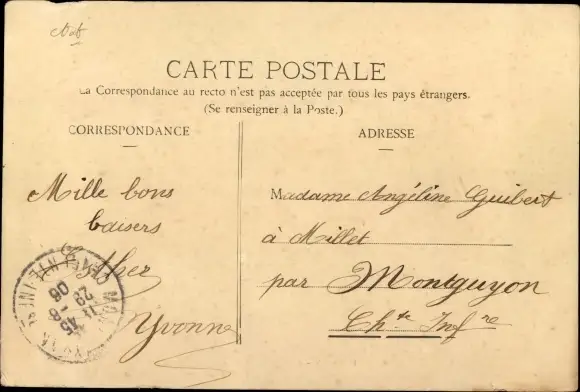 CARTE POSTALE
La Correspondance au recto n'est pas acceptée par tous les pays étrangers.
(Se renseigner à la Poste.)
CORRESPONDANCE
ADRESSE
Mille bons
baisers
Yvonne
Madame Angéline Guibert
à Millet
par Montguyon
Ch.te Inf.re
11 45
23 -8
06